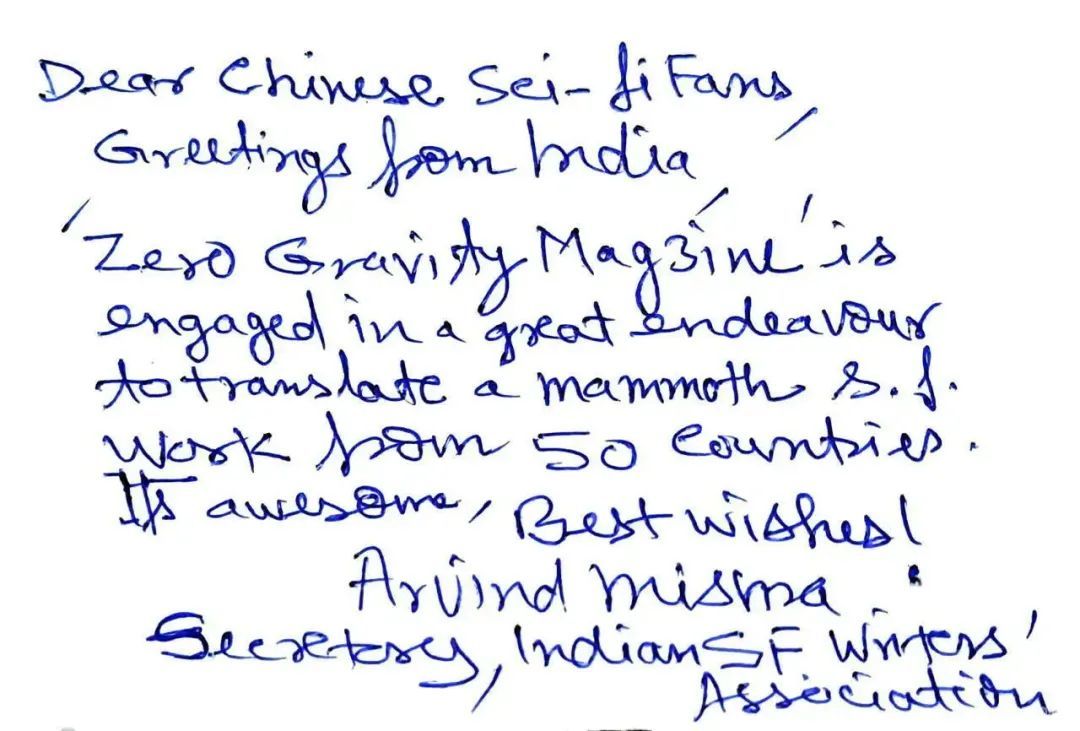 Dear Chinese Sci-fi Fans,
Greetings from India
'Zero Gravity Magzine' is
engaged in a great endeavour
to translate a mammoth s.f.
work from 50 countries.
It's awesome, Best wishes!
Arvind Mishra
Secretary, Indian SF Writers'
Association